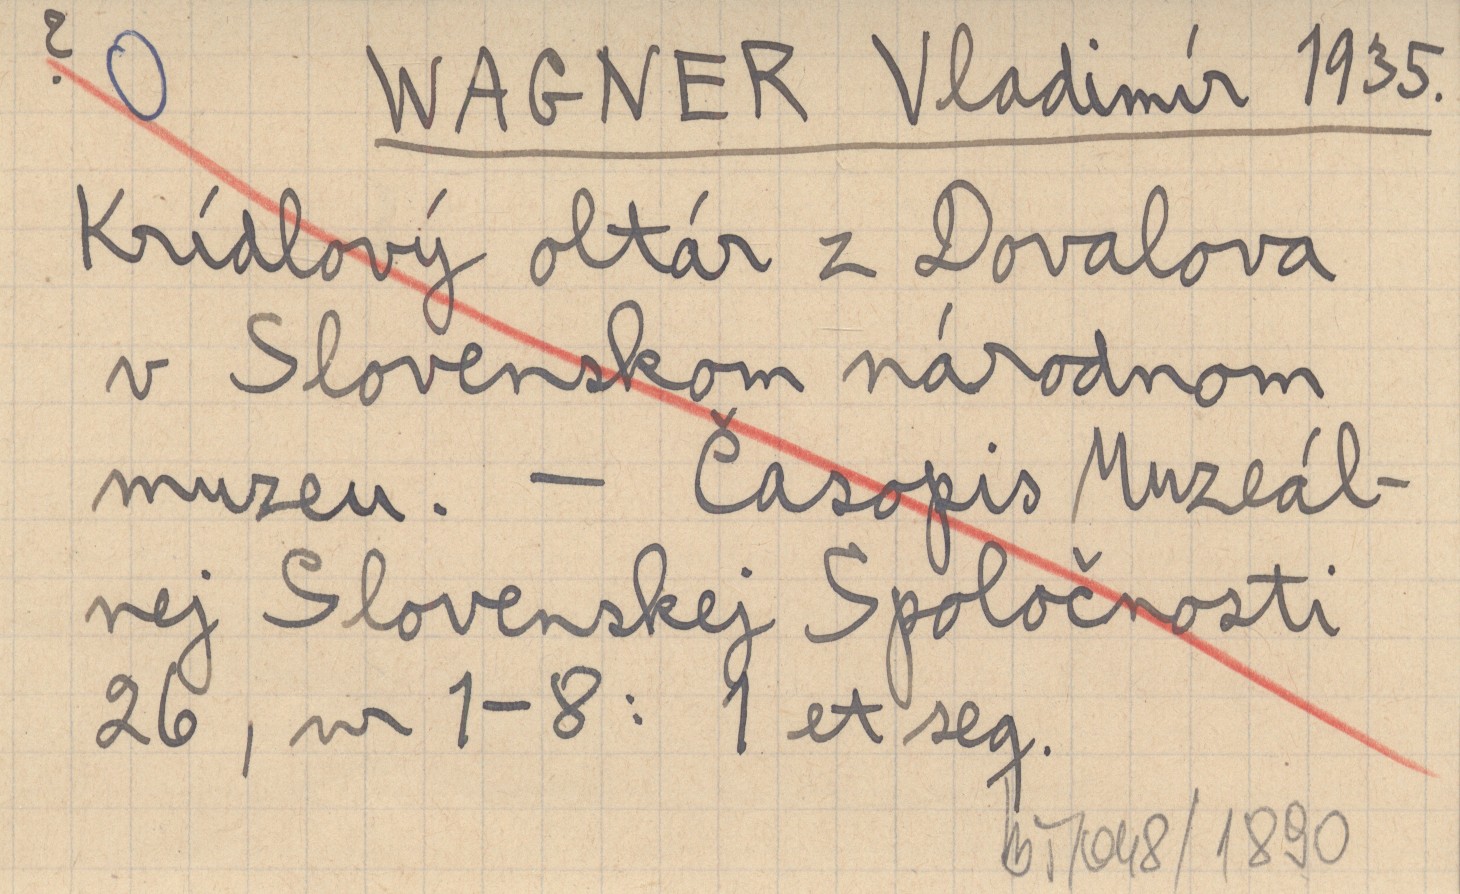 ? O WAGNER Vladimír 1935.
Krídlový oltár z Dovalova
v Slovenskom národnom
muzeu. — Časopis Muzeál-
nej Slovenskej Spoločnosti
26, nr 1-8: 1 et seq.
/1890